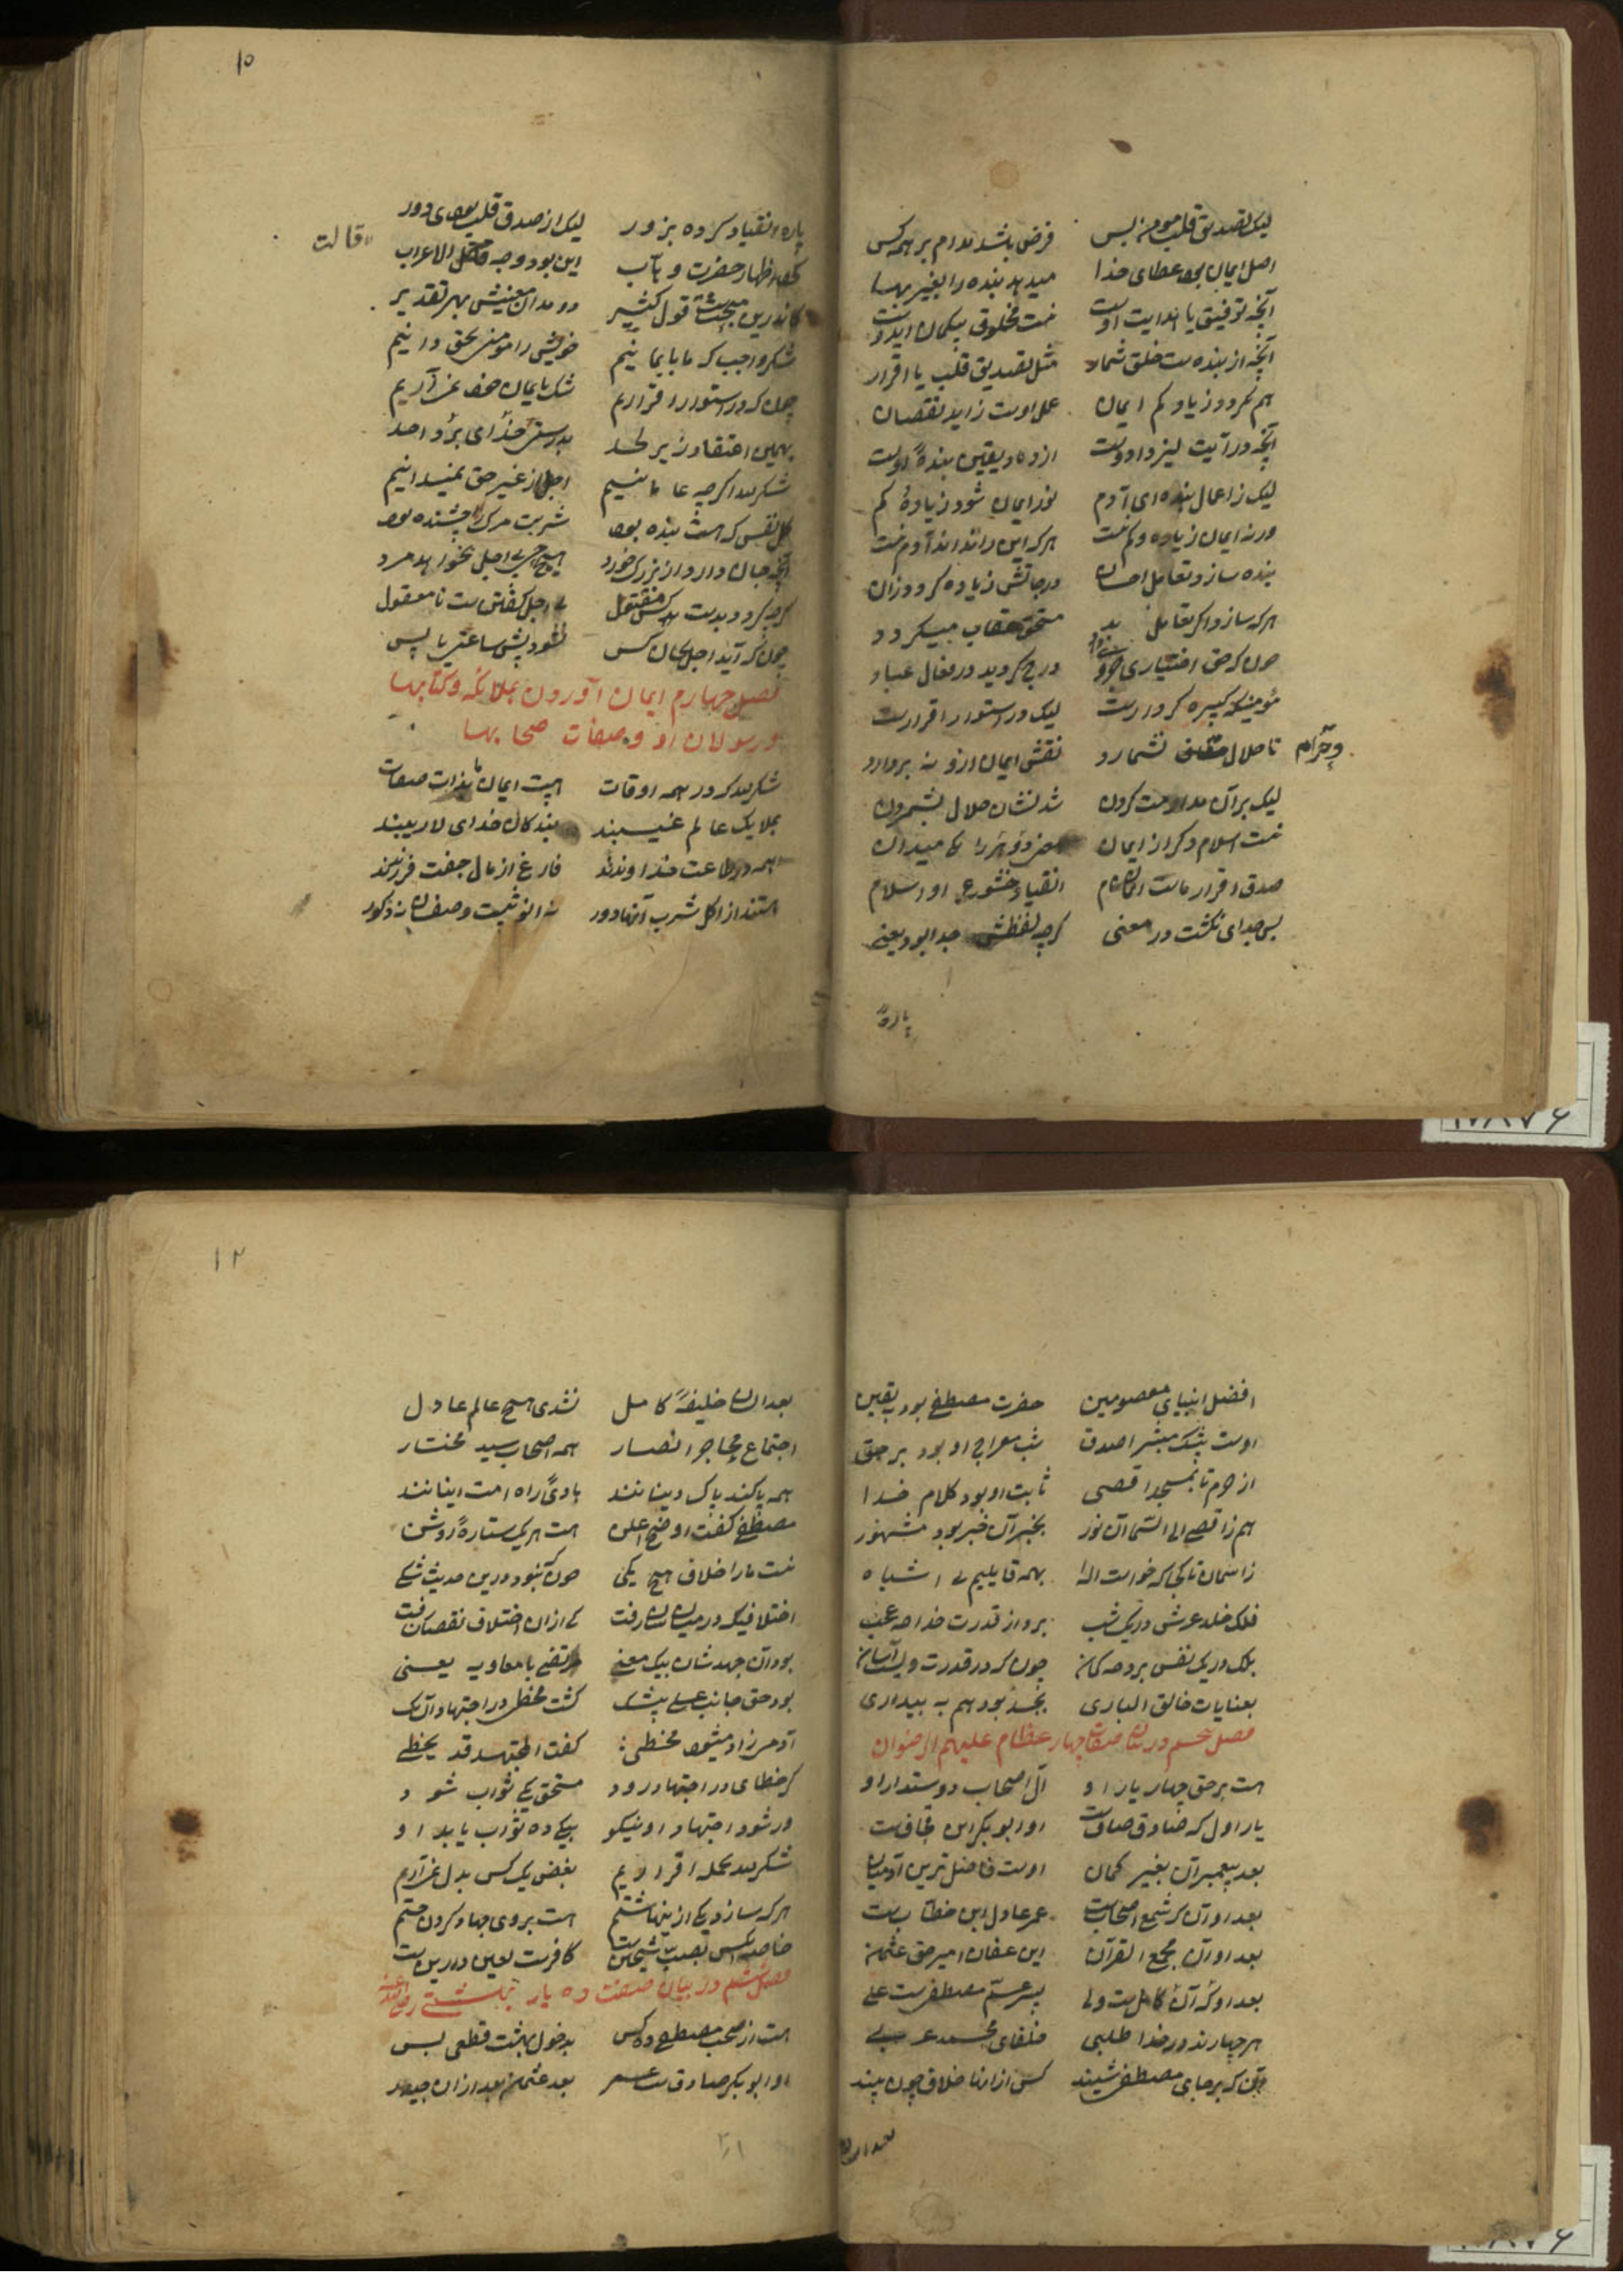 لیک تصدیق قلب مومن بس فرض باشد مدام بر همه کس
اصل ایمان بود عطای خدا میدهد بنده را بغیر بها
آنچه توفیق یا هدایت اوست نیست مخلوق بیکمان ایدوست
آنچه از بنده ست خلق شمار مثل تصدیق قلب یا اقرار
هم نکردد زیاد و کم ایمان عمل اوست زاید نقصان
آنچه در آیت لیزدادوست ازدیاد یقین بندهٔ اوست
لیک ز اعمال بنده ای آدم نور ایمان شود زیاده کم
ورنه ایمان زیاده و کم نیست هر که این را نداند آدم نیست
بنده سازد تعامل احسان درجاتش زیاده کردد زان
هر که سازد اکر تعامل بد مستحق عقاب میکردد
چون که حق اختیاری جزو داد درج کردید در فعال عباد
مؤمنیکه کبیره کردارست لیک در استوار اقرارست
تا حلال نشمارد نقش ایمان ازو نه بردارد
وحرام
لیک بر آن مداومت کردن شد نشان حلال بشمردن
نیست اسلام دکر از ایمان میدان
صدق اقرار ماست ایمان نام انقیاد خشوع او اسلام
بس جدای نکشت در معنی کرچه لفظش جدا بود یعنی
پارهٔ
۱۰
پاره انقیاد کرده بزور لیک از صدق قلب بوده دور
این بود وجه الاعراب
قالت
کاندرین مبحث است قول کثیر
شکر واجب که ما بایمانیم خویش را مومن بحق دانیم
چون که در استوار اقراریم شک بایمان خود نمی آریم
بهمین اعتقاد زیر لحد بدرستی خدای برد واحد
شکر لله اکرچه عاصانیم اجل از غیر حق نمیدانیم
کل نفسی که هست بنده بود شربت مرک را چشنده بود
آنچه جان دارد از بزرک خورد هیچ بی اجل نخواهد مرد
کرچه کردد بدست کس مقتول بی اجل کفتن ست نا معقول
چون که آید اجل بجان کس نشود پیش ساعتی یا پس
فصل چهارم ایمان آوردن بملائکه و کتابها
و رسولان او و صفات صحابها
شکر لله که در همه اوقات هست ایمان ما بذات صفات
بملایک عالم غیبند بندکان خدای لاریبند
همه در طاعت خداوندند فارغ از مال جفت فرزندند
هستند از اکل شرب آنها دور نه انوثیت وصفشان نه ذکور
افضل انبیای معصومین حضرت مصطفی بود بیقین
اوست بیشک مبشر اصدق شب معراج او بود بر حق
از حرم تا بمسجد اقصی ثابت او بود کلام خدا
هم ز اقصی الی السما آن نور بخبر آن خبر بود مشهور
ز آسمان تا بجای که خواست اله بهمه قایلیم بی اشباه
فلک خلد عرش در یک شب برد از قدرت خدا چه عجب
بلک در یک نفس برد چه کمان چون که در قدرت ویست آسان
بعنایات خالق الباری بجسد بود هم به بیداری
فصل پنجم در بیان صفات چهار عظام علیهم الرضوان
هست بر حق چهار یار او آل اصحاب دوستدار او
یار اول که صادق صافست او ابوبکر ابن قحافست
بعد پیغمبران بغیر کمان اوست فاضل ترین آدمیان
بعد او آن که شمع اصحابست عمر عادل ابن خطابست
بعد او آن مجمع القرآن ابن عفان امیر حق عثمان
بعد او که آن کامل ست ولی پسر عم مصطفی ست علی
هر چهارند در خدا طلبی خلفای محمد عربی
این که بر جای مصطفی شینند کس از اینها خلاف چون بیند
بعد ایشان
۱۲
بعد ایشان خلیفهٔ کامل نشدی هیچ عالم عادل
اجتماع مهاجر انصار همه اصحاب سید مختار
همه پاکند پاک دینانند هادی راه امت اینانند
مصطفی کفت اوضح اعلن هست هر یک ستارهٔ روشن
نیست ما را خلاف هیچ یکی چون نبود درین حدیث شکی
اختلافیکه در میانشان رفت نی از ان اختلاف نقصان رفت
بود آن جهدشان بیک معنی مرتضی با معاویه یعنی
بود حق جانب علی بیشک کشت مخطی در اجتهاد آن یک
آدمیزاد میشود مخطی کفت المجتهد قد یخطی
کر خطای در اجتهاد رود مستحق یکی ثواب شود
ور شود اجتهاد او نیکو بیکی ده ثواب یابد او
شکر لله بجمله اقراریم بغض یک کس بدل نمی آریم
هر که سازد یکی از اینها شتم هست بر وی جهاد کردن حتم
خاصه آنکس بسب شیخین ست کافرست لعین دارین ست
فصل ششم در بیان صفت ده یار بهشتی رضی الله عنه
هست از صحب مصطفی ده کس بدخول بهشت قطعی بس
او ابوبکر صادق ست عمر بعد عثمان بعد از ان حیدر